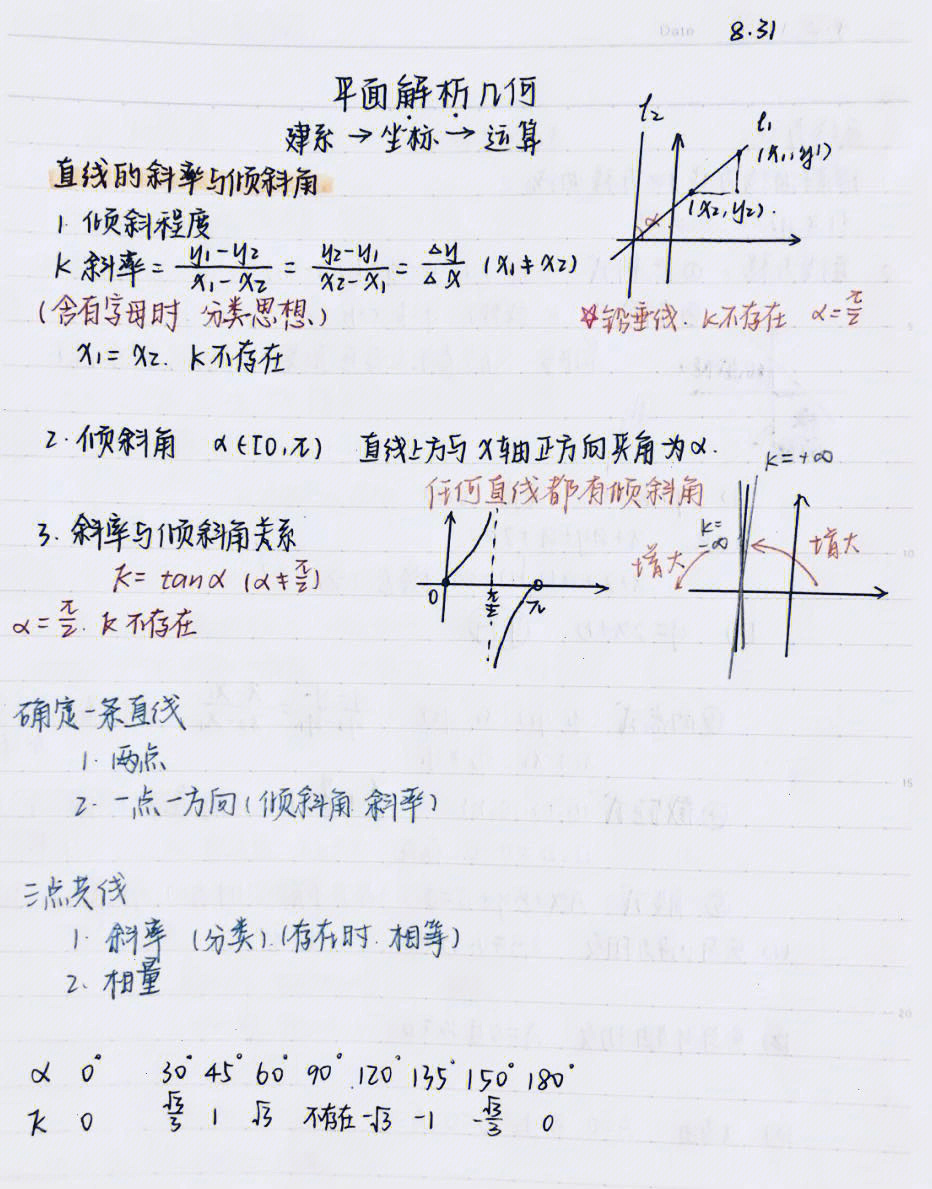 Date 8.31
平面解析几何
建系 → 坐标 → 运算
l₂
l₁
(x₁, y₁)
(x₂, y₂).
α
直线的斜率与倾斜角
1. 倾斜程度
K 斜率 = \frac{y₁-y₂}{x₁-x₂} = \frac{y₂-y₁}{x₂-x₁} = \frac{△y}{△x} (x₁≠x₂)
(含有字母时 分类思想)
☆铅垂线. K不存在 α=\frac{π}{2}
x₁=x₂. K不存在
2. 倾斜角 α∈[0,π) 直线上方与x轴正方向夹角为α.
任何直线都有倾斜角
k=+∞
k=-∞
增大
增大
3. 斜率与倾斜角关系
K=tanα (α≠\frac{π}{2})
α=\frac{π}{2}. K不存在
0 \frac{π}{2} π
确定一条直线
1. 两点
2. 一点一方向(倾斜角 斜率)
三点共线
1. 斜率 (分类)(存在时. 相等)
2. 相量
α 0° 30° 45° 60° 90° 120° 135° 150° 180°
K 0 \frac{√3}{3} 1 √3 不存在 -√3 -1 -\frac{√3}{3} 0